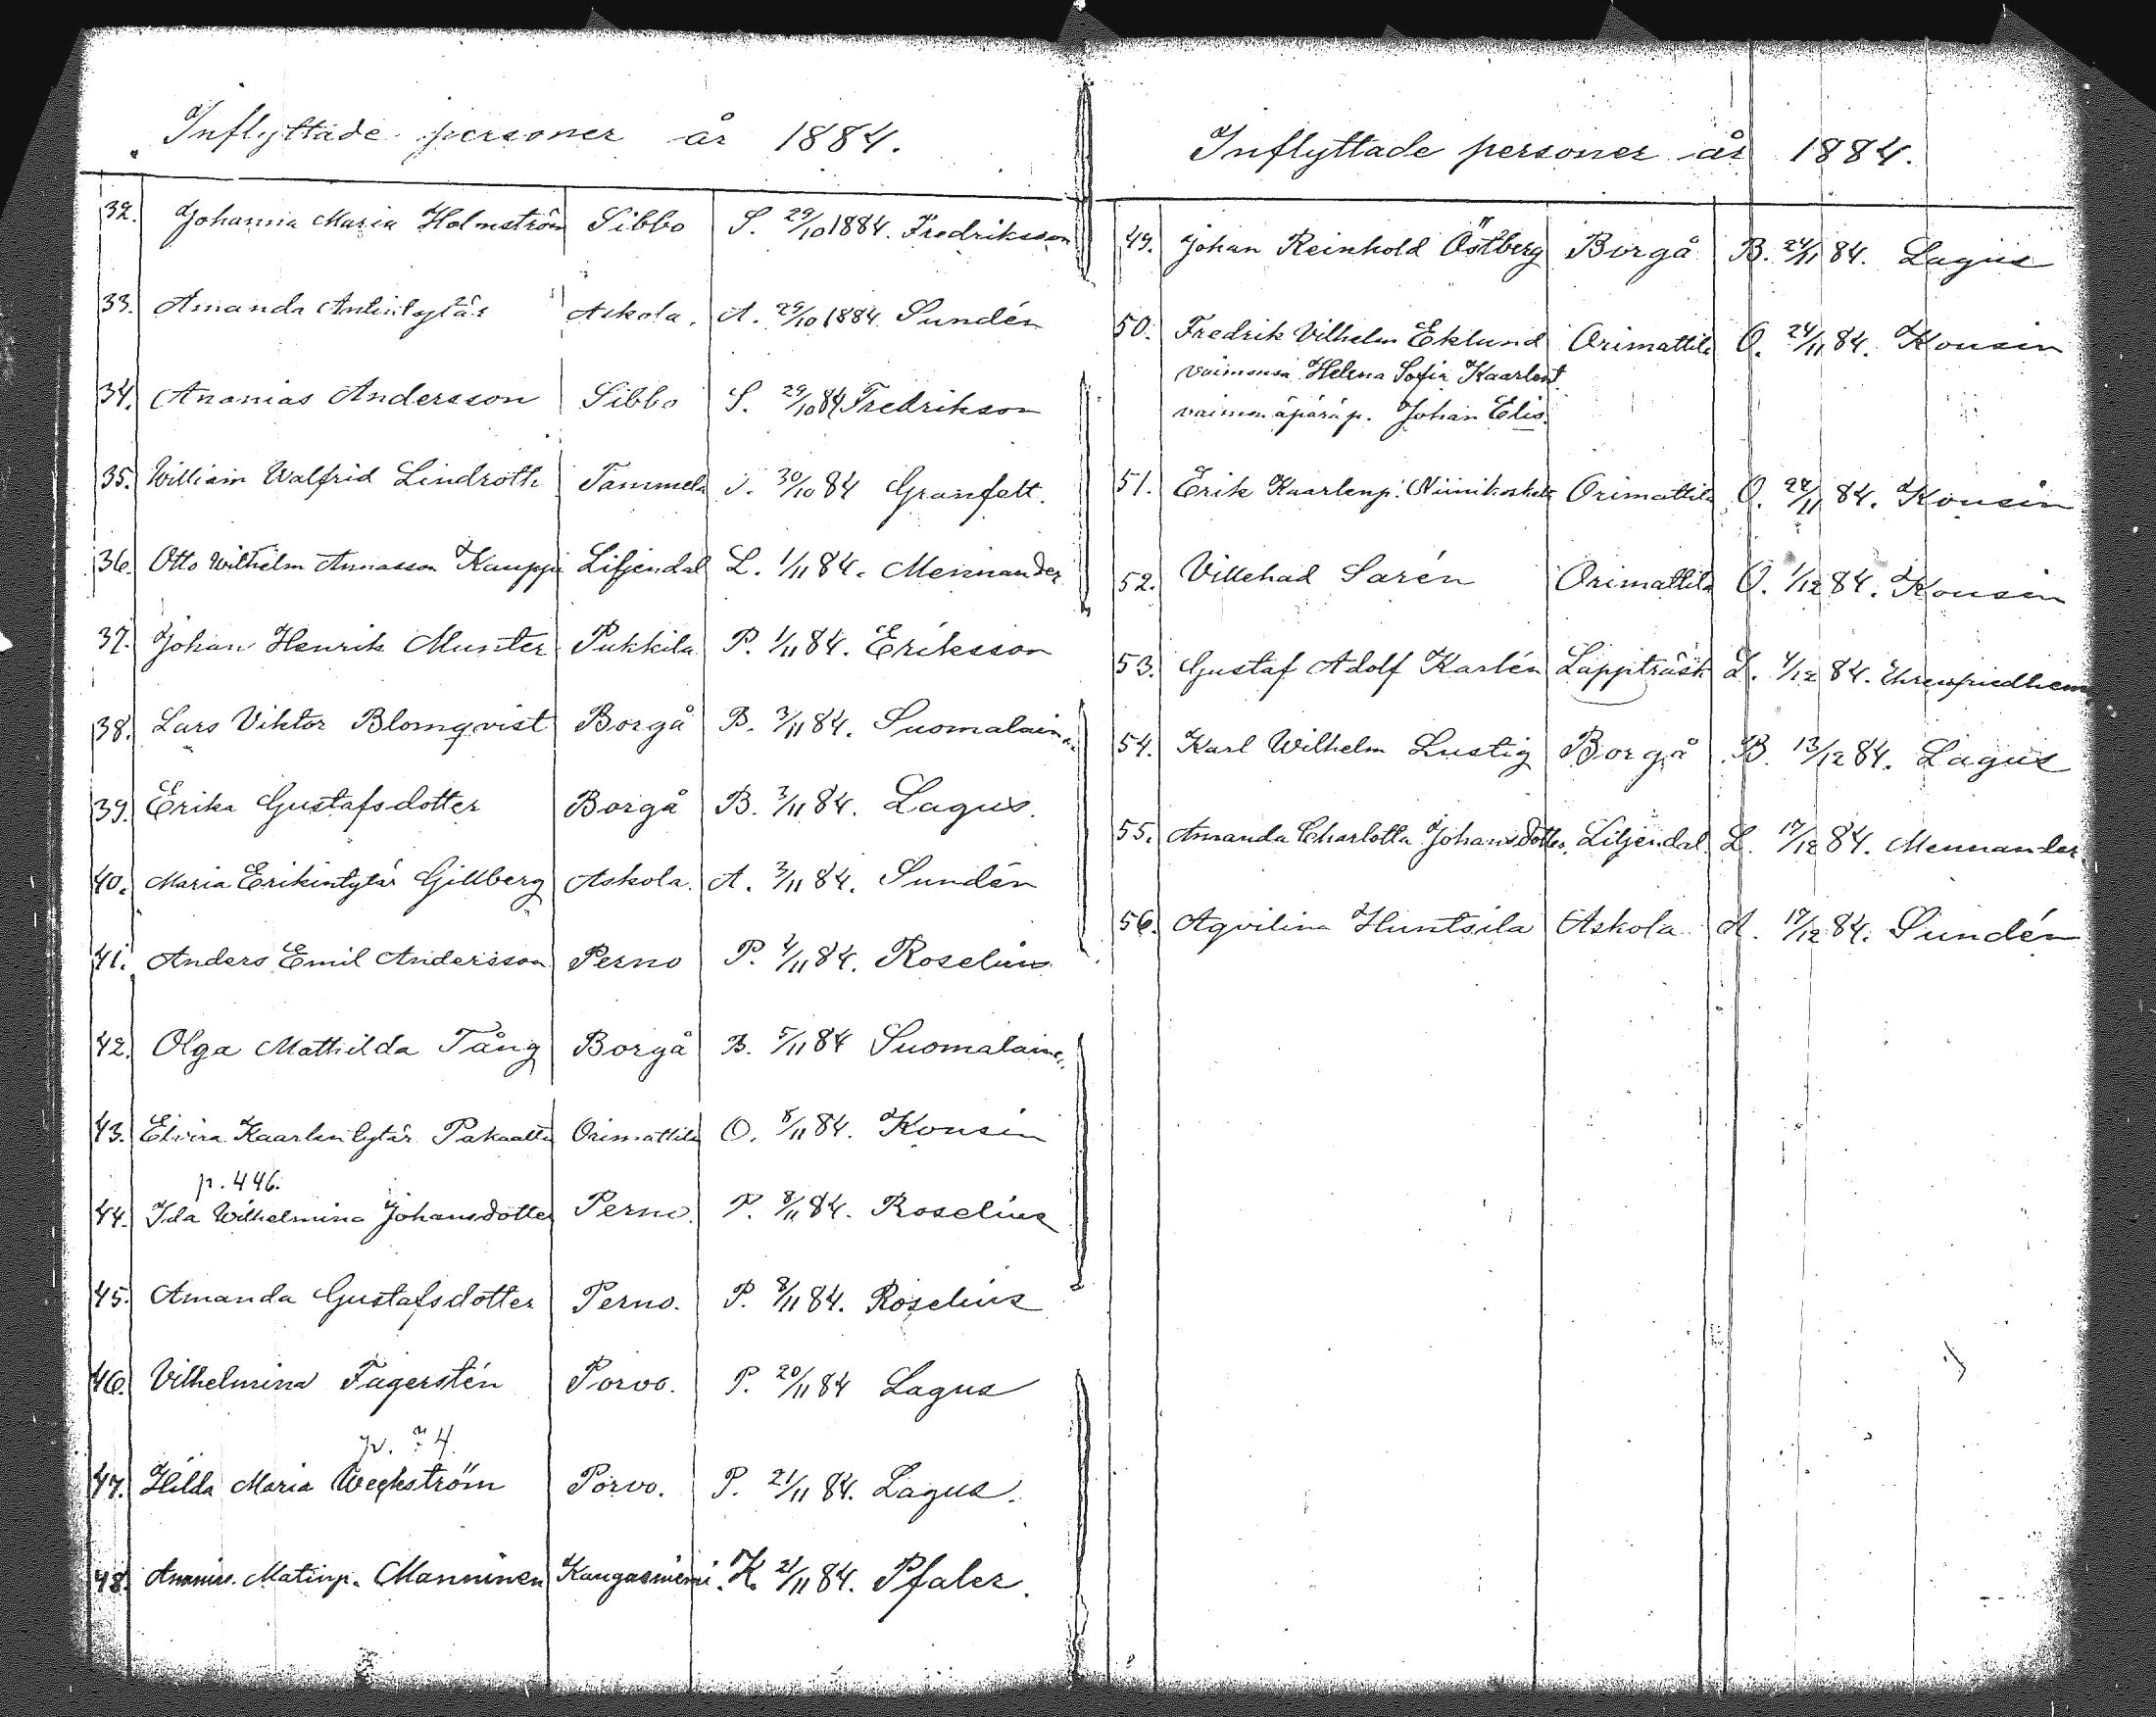 Inflyttade personer år 1884.
32. Johanna Maria Holmström Sibbo S. 29/10 1884. Fredriksson
33. Amanda Antintytär Askola. A. 29/10 1884. Sundén
34. Ananias Andersson Sibbo S. 29/10 84 Fredrikson
35. William Walfrid Lindroth Tammela 30/10 84 Granfelt.
36. Otto Wilhelm Annasson Kauppi Liljendal L. 1/11 84. Mennander
37. Johan Henrik Munter Pukkila P. 1/11 84. Eriksson
38. Lars Viktor Blomqvist Borgå B. 3/11 84. Suomalain
39. Erika Gustafsdotter Borgå B. 3/11 84. Lagus.
40. Maria Erikintytär Gillberg Askola. A. 3/11 84. Sundén
41. Anders Emil Andersson Perno P. 4/11 84. Roselius
42. Olga Mathilda Tång Borgå B. 5/11 84 Suomalaine
43. Elvira Kaarlentytär Orimattila O. 8/11 84. Konsin
p. 446.
44. Ida Wilhelmina Johansdotter Perno. P. 8/11 84. Roselius
45. Amanda Gustafsdotter Perno. P. 8/11 84. Roselius
46. Vilhelmina Fagerstén Porvo. P. 20/11 84 Lagus
47. Hilda Maria Weckström Porvo. P. 21/11 84. Lagus.
48. Matinp. Manninen Kangasniemi. K. 21/11 84. Pfaler.
Inflyttade personer år 1884.
49. Johan Reinhold Östberg Borgå B. 24/11 84. Lagus
50. Fredrik Vilhelm Eklund Orimattila O. 24/11 84. Konsin
vaimonsa Helena Sofia Kaarlent.
vaimon äpärä p. Johan Elis.
51. Erik Kaarlenp. Niinikoski Orimattila O. 24/11 84. Konsin
52. Villehad Sarén Orimattila O. 1/12 84. Konsin
53. Gustaf Adolf Karlén Lappträsk L. 4/12 84.
54. Karl Wilhelm Lustig Borgå B. 13/12 84. Lagus
55. Amanda Charlotta Johansdotter. Liljendal. L. 17/12 84. Mennander
56. Aqvilina Huntsila Askola A. 17/12 84. Sundén